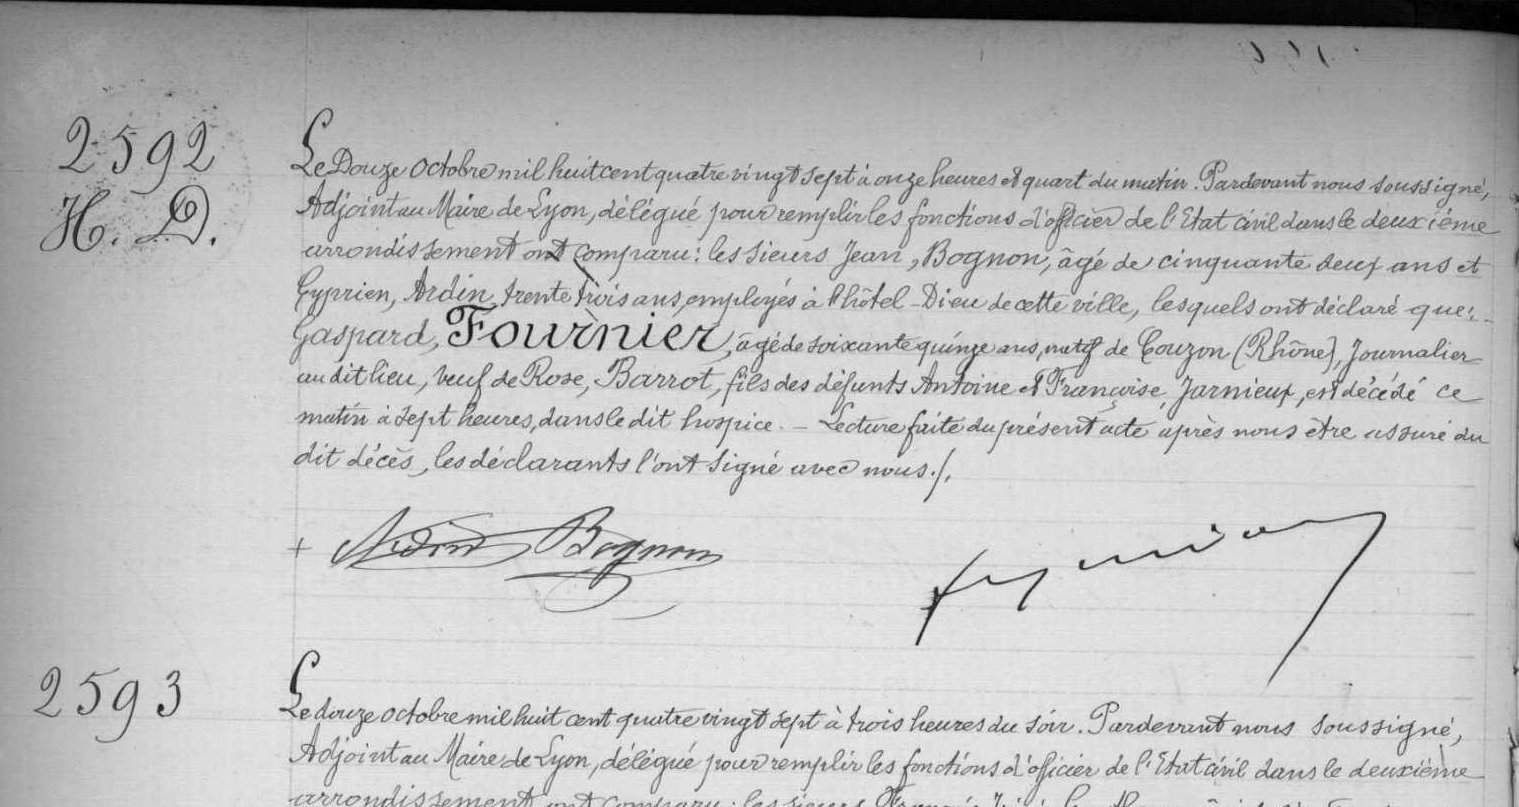 2592
H. D.
Le Douze Octobre mil huit cent quatre vingt sept à onze heures et quart du matin. Pardevant nous soussigné,
Adjoint au Maire de Lyon, délégué pour remplir les fonctions d'officier de l'Etat civil dans le deuxième
arrondissement ont comparu: les sieurs Jean, Bognon, âgé de cinquante deux ans et
Cyprien, Ardin, trente trois ans, employés à l'hôtel-Dieu de cette ville, lesquels ont déclaré que:
Gaspard, Fournier, âgé de soixante quinze ans, natif de Couzon (Rhône), Journalier
au dit lieu, veuf de Rose, Barrot, fils des défunts Antoine et Françoise, Jarnieux, est décédé ce
matin à sept heures, dans le dit hospice. _ Lecture faite du présent acte après nous être assuré du
dit décès, les déclarants l'ont signé avec nous./.
Ardin Bognon
2593
Le douze octobre mil huit cent quatre vingt sept à trois heures du soir. Pardevant nous soussigné,
Adjoint au Maire de Lyon, délégué pour remplir les fonctions d'officier de l'Etat civil dans le deuxième
arrondissement ont comparu: les sieurs